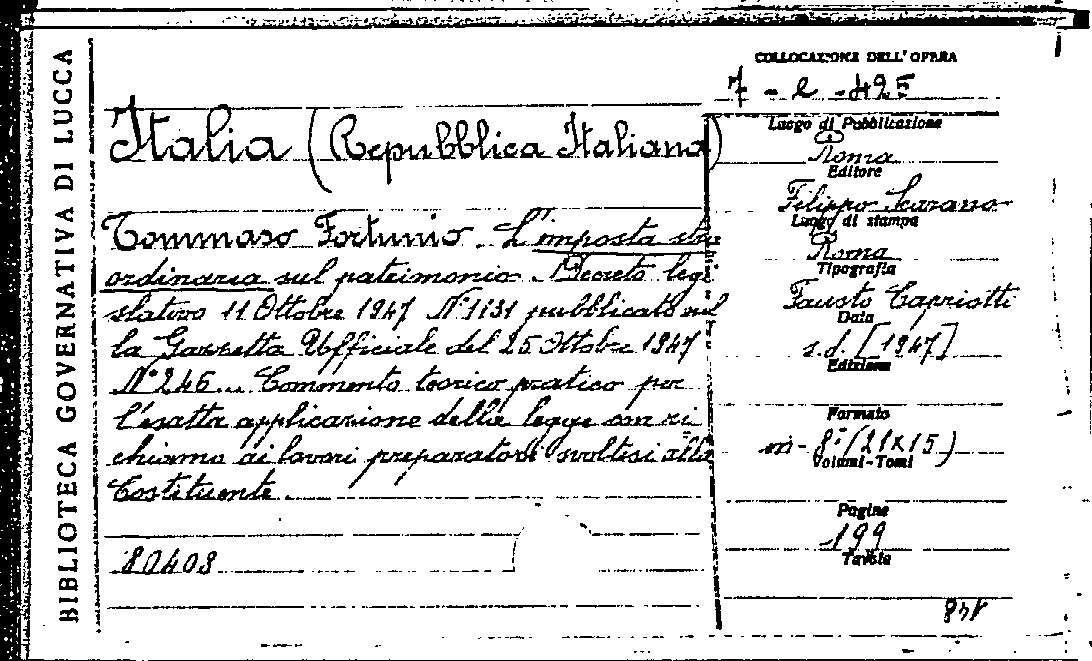 BIBLIOTECA GOVERNATIVA DI LUCCA
COLLOCAZIONE DELL'OPERA
7 - e - 425
Italia (Repubblica Italiana)
Tommaso Fortunio. L'imposta stra
ordinaria sul patrimonio. Decreto legi
slativo 11 Ottobre 1947 N°1131 pubblicato nel
la Gazzetta Ufficiale del 25 Ottobre 1947
N°246... Commento teorico pratico per
l'esatta applicazione della legge con ri
chiamo ai lavori preparatori svoltesi alla
Costituente.
80408
Luogo di Pubblicazione
Roma
Editore
Filippo Scarano
Luogo di stampa
Roma
Tipografia
Fausto Capriotti
Data
s.d. [1947]
Edizione
Formato
in-8° (21x15)
Volumi-Tomi
Pagine
199
Tavole